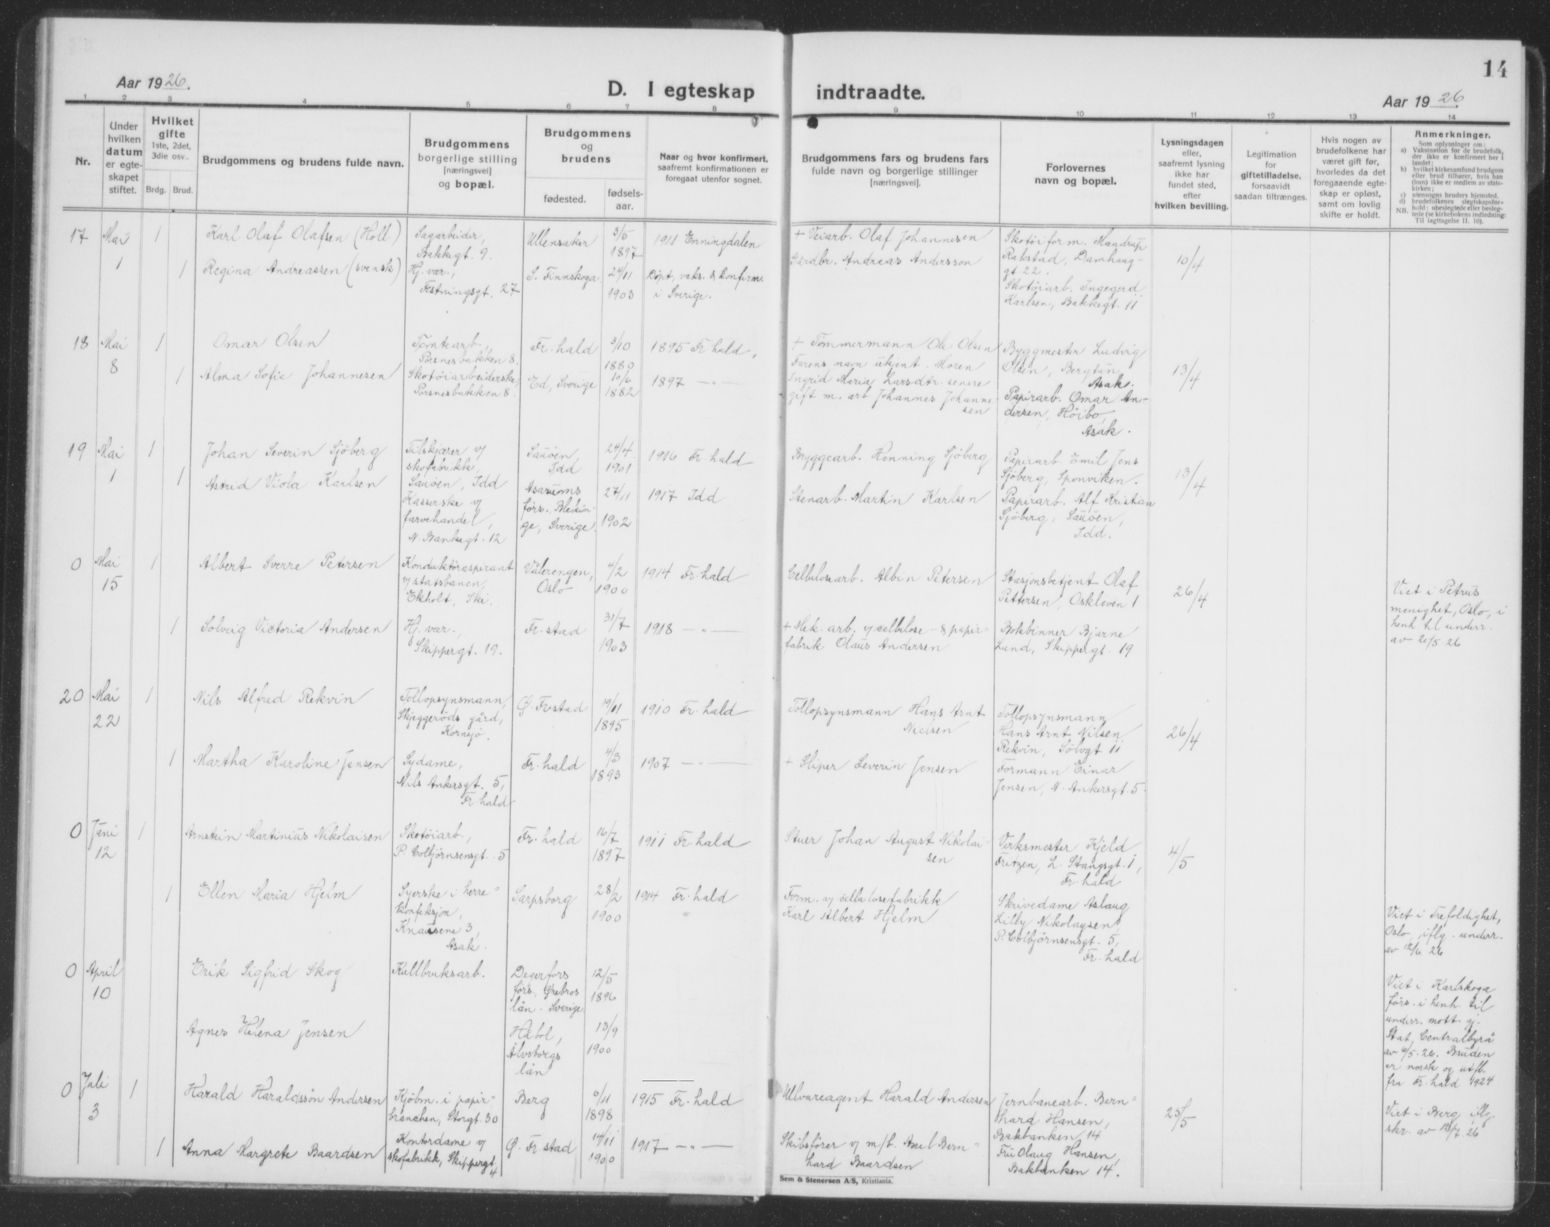 14
Aar 1926.
D. I egteskap indtraadte.
Aar 1926
1 2 3 4 5 6 7 8 9 10 11 12 13 14
Nr.
Under hvilken datum er egteskapet stiftet.
Hvilket gifte 1ste, 2det, 3die osv.
Brdg. Brud.
Brudgommens og brudens fulde navn.
Brudgommens borgerlige stilling [næringsvei] og bopæl.
Brudgommens og brudens
fødested.
fødsels-aar.
Naar og hvor konfirmert, saafremt konfirmationen er foregaat utenfor sognet.
Brudgommens fars og brudens fars fulde navn og borgerlige stillinger [næringsvei].
Forlovernes navn og bopæl.
Lysningsdagen eller, saafremt lysning ikke har fundet sted, efter hvilken bevilling.
Legitimation for giftetilladelse, forsaavidt saadan tiltrænges.
Hvis nogen av brudefolkene har været gift før, hvorledes da det foregaaende egteskap er opløst, samt om lovlig skifte er holdt.
Anmerkninger.
17 Mai 1
1 Karl Olaf Olafsen (Holl)
Sagarbeider, Bakkegt. 9.
Ullensaker 3/5 1897
1911 Enningdalen
+ Veiarb. Olaf Johannesen
Skotøiform. Mandrup Rakstad, Damhauggt 22.
10/4
1 Regina Andreassen (svensk)
Hj. vær., Festningsgt. 27
S. Finnskoga 24/11 1903
Døpt, vaks. & konfirm. i Sverige.
Gårdbr. Andreas Andersson
Skotøiarb. Ingegerd Karlsen, Bakkegt. 11
18 Mai 8
1 Omar Olsen
Tomtearb., Pørsnesbukken 8.
Fr.hald 3/10 1880
1895 Fr hald.
+ Tømmermann Ole Olsen
Byggmester Ludvig Olsen, Bergtun, Asak.
13/4
1 Alma Sofie Johannesen
Skotøiarbeiderske Pørsnesbukken 8.
Ed, Sverige 10/6 1882
1897 —〃—
Farens navn ukjent. Moren Ingrid Maria Larsdtr. senere gift m. arb Johannes Johannesen
Papirarb. Omar Andersen, Høibo, Asak.
19 Mai 1
1 Johan Severin Sjöberg
Tilskjærer v/ skofabrikk, Sauøen, Idd
Sauöen, Idd 24/4 1901
1916 Fr hald
Byggearb. Henning Sjöberg
Papirarb. Emil Jens Sjöberg, Sponviken.
13/4
1 Astrid Viola Karlsen
Kasserske v/ farvehandel, N. Bankegt. 12
Asarums förs., Blekinge, Sverige 27/11 1902
1917 Idd
Stenarb. Martin Karlsen
Papirarb. Alf Kristian Sjöberg, Sauøen, Idd.
0 Mai 15
1 Albert Sverre Petersen
Konduktøraspirant v/ statsbanen, Ekholt, Ski.
Vålerengen, Oslo 4/2 1900
1914 Fr hald
Cellulosearb. Albin Petersen
Stasjonsbetjent Olaf Pettersen, Oskleven 1
26/4
Viet i Petrus menighet, Oslo, i henh. til underr. av 21/5 26
1 Solveig Victoria Andersen
Hj. vær., Skippergt. 19.
Fr. stad 31/7 1903
1918 —〃—
+ Mek. arb. v/ cellulose- & papirfabrik Olaus Andersen
Bokbinner Bjarne Lund, Skippergt. 19
20 Mai 22
1 Nils Alfred Rekvin
Tollopsynsmann, Skjeggerøds gård, Kornsjø.
Ø. Fr.stad 19/11 1895
1910 Fr. hald
Tollopsynsmann Hans Arnt Nielsen
Tollopsynsmann Hans Arnt Nilsen Rekvin, Sølvgt 11
26/4
1 Martha Karoline Jensen
Sydame, Nils Ankersgt. 5, Fr hald
Fr.hald 4/3 1893
1907 —〃—
+ Sliper Severin Jensen
Formann Einar Jensen, N. Ankersgt. 5
0 Juni 12
1 Arnstein Martinius Nikolaisen
Skotøiarb., P. Colbjørnsensgt. 5
Fr. hald 16/7 1897
1911 Fr. hald
Stuer Johan August Nikolaisen
Verksmester Kjeld Fritzen, L. Stangsgt. 1, Fr hald
4/5
1 Ellen Maria Hjelm
Syerske i herrekonfeksjon, Knausene 3, Asak.
Sarpsborg 28/2 1900
1914 Fr. hald
Form. v/ cellulosefabrikk Karl Albert Hjelm
Skrivedame Aslaug Lilly Nikolaysen P. Colbjørnsensgt. 5, Fr. hald
Viet i Trefoldighet, Oslo, iflg. underr. av 12/6 26
0 April 10
Erik Sigfrid Skog
Kullbruksarb.
Degerfors förs. Ørebros län. Sverige 12/5 1896
Viet i Karlskoga förs. i henh. til underr. mott. gj. Stat. Centralbyrå av 4/5. 26. Bruden er norsk og utfl. fra Fr hald 1924
Agnes Helena Jensen
Håbol, Älvsborgs län 13/9 1900
0 Juli 3
1 Harald Haraldssøn Andersen
Kjøbm. i papirbranchen, Storgt 30
Berg 9/11 1898
1915 Fr. hald
Ullvareagent Harald Andersen
Jernbanearb. Bernhard Hansen, Bakbanken 14
25/5
Viet i Berg iflg. skr. av 12/7 26
1 Anna Margrete Baardsen
Kontordame v/ skofabrikk, Skippergt. 4
Ø. Fr stad 14/11 1900
1917 —〃—
Skibsfører v/ m/f. Axel Bernhard Baardsen
Fru Olaug Hansen, Bakbanken 14.
Sem & Stenersen A/S, Kristiania.